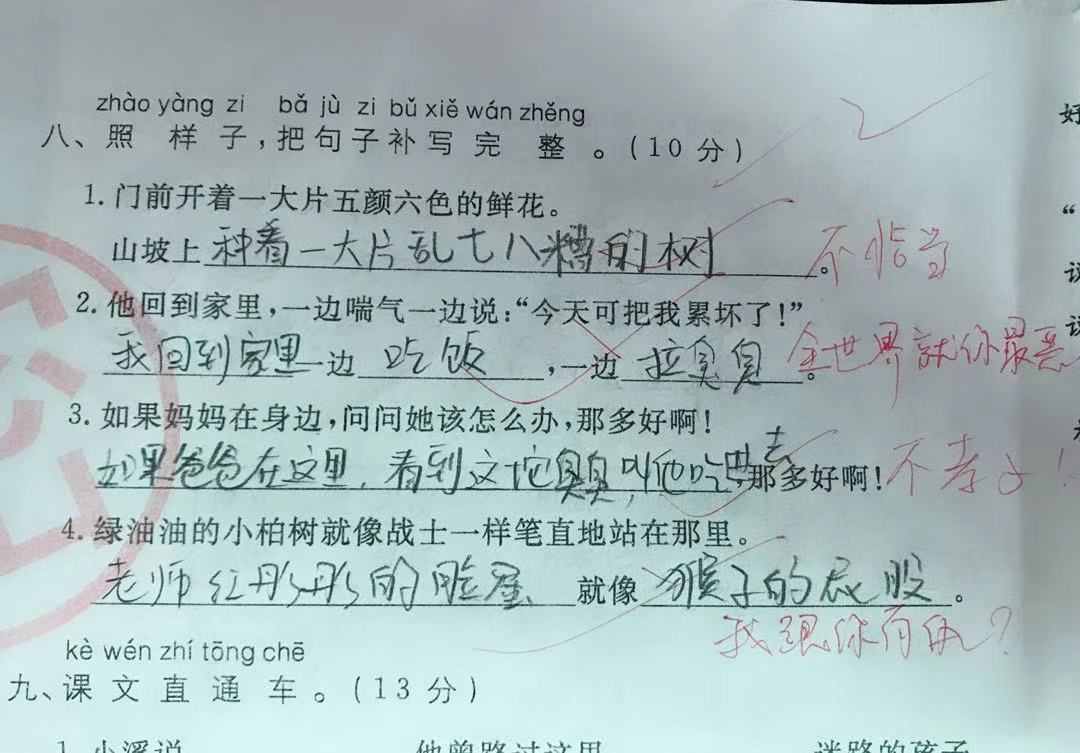 zhào yàng zi bǎ jù zi bǔ xiě wán zhěng
八、照样子,把句子补写完整。(10分)
好
1.门前开着一大片五颜六色的鲜花。
“
山坡上种着一大片乱七八糟的树。不恰当
2.他回到家里,一边喘气一边说:“今天可把我累坏了!”
我回到家里一边吃饭,一边拉臭臭。全世界就你最恶
3.如果妈妈在身边,问问她该怎么办,那多好啊!
如果爸爸在这里,看到这坨臭臭,叫他吃下去那多好啊!不孝子!
4.绿油油的小柏树就像战士一样笔直地站在那里。
老师红彤彤的脸蛋就像猴子的屁股。
我跟你有仇?
kè wén zhí tōng chē
九、课文直通车。(13分)
1.小溪说
他曾路过这里
迷路的孩子